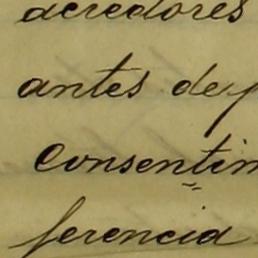 acredores
antes de
consentim
ferencia